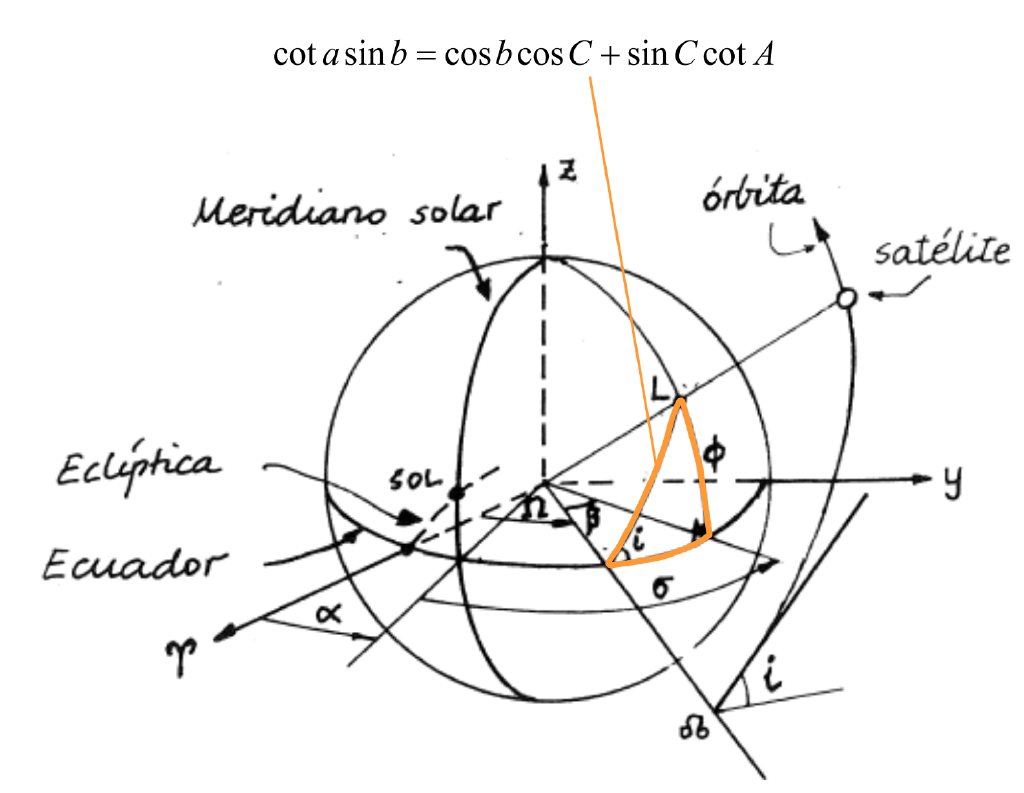 cot a sin b = cos b cos C + sin C cot A
z
Meridiano solar
órbita
satélite
L
Eclíptica
SOL
ϕ
y
Ω
β
i
Ecuador
σ
α
♈
i
☊